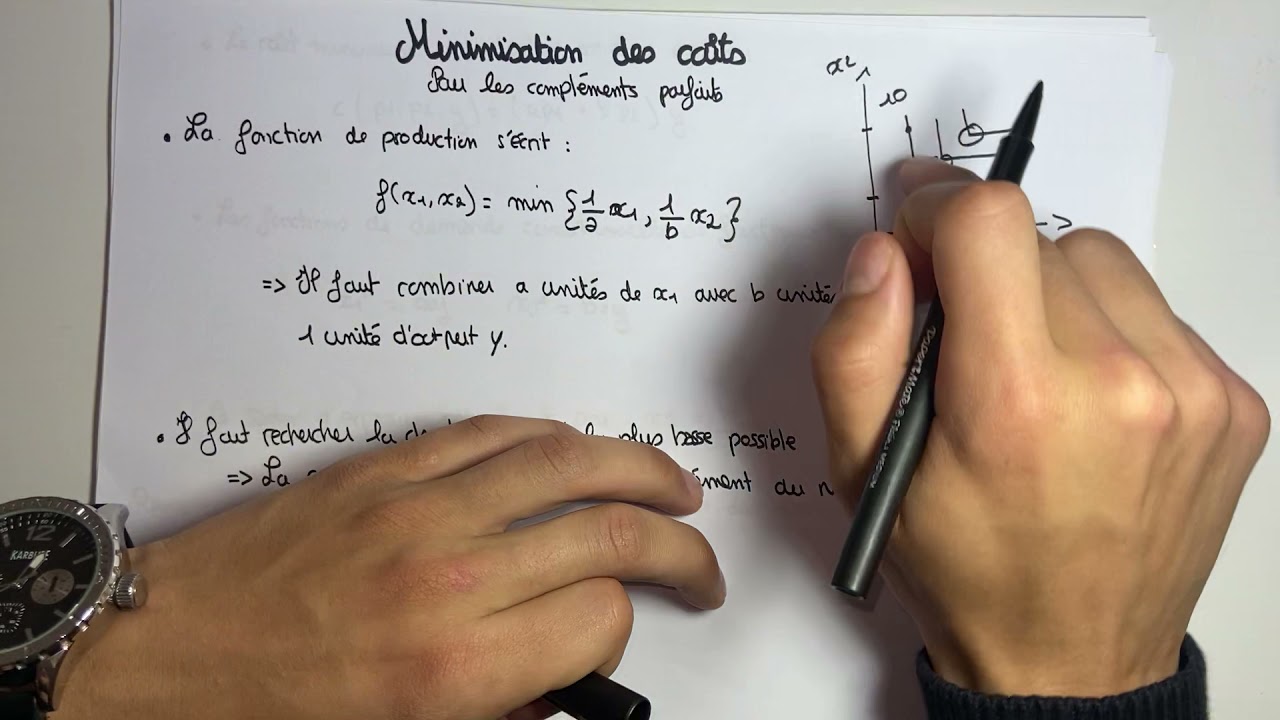 Minimisation des coûts
Pour les compléments parfaits
• La fonction de production s'écrit :
f(x1, x2) = min {1/a x1, 1/b x2}
=> Il faut combiner a unités de x1 avec b unité
1 unité d'output y.
• Il faut rechercher la plus basse possible
=> La du
x2
10
KARBURE
12